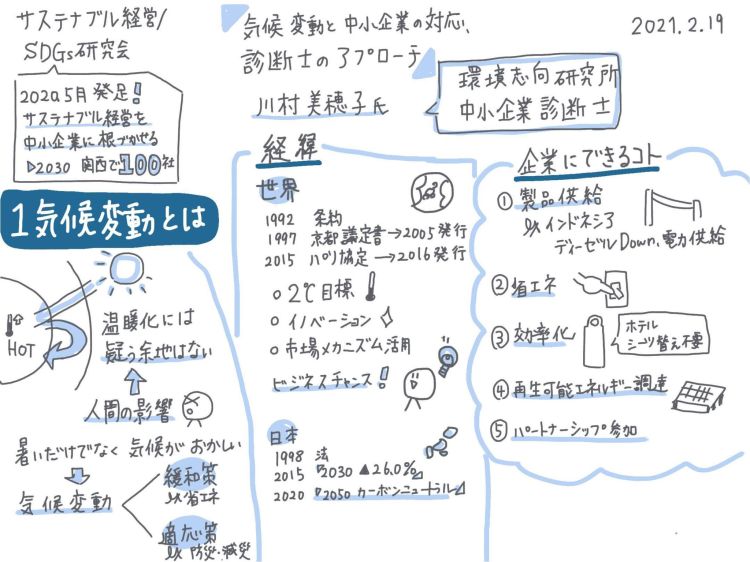 サステナブル経営/
SDGs研究会
2020.5月 発足!
サステナブル経営を
中小企業に根づかせる
▷2030 関西で100社
気候変動と中小企業の対応、
診断士のアプローチ
川村美穂子氏
環境志向研究所
中小企業診断士
2021.2.19
1気候変動とは
HOT
温暖化には
疑う余地はない
人間の影響
暑いだけでなく 気候がおかしい
気候変動
緩和策
ex 省エネ
適応策
ex 防災・減災
経緯
世界
1992 条約
1997 京都議定書→2005発行
2015 パリ協定→2016発行
○2℃目標
○イノベーション
○市場メカニズム活用
ビジネスチャンス!
日本
1998 法
2015 「2030 ▲26.0%」
2020 「2050 カーボンニュートラル」
企業にできるコト
①製品供給
ex インドネシア
ディーゼルDown、電力供給
②省エネ
③効率化
ホテル
シーツ替え不要
④再生可能エネルギー調達
⑤パートナーシップ参加